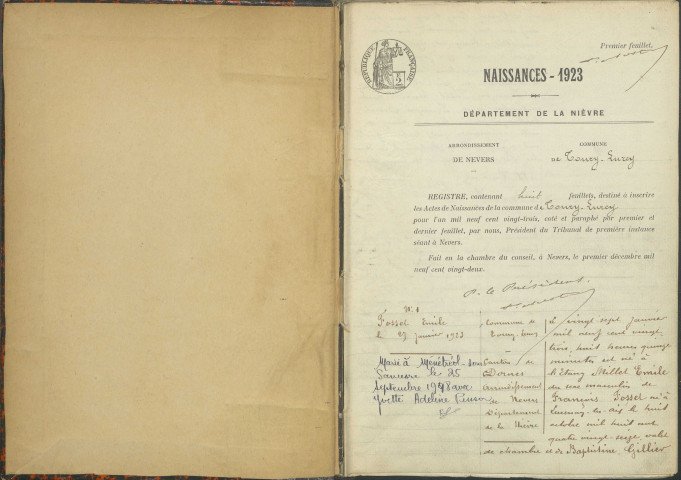 Premier feuillet.
RÉPUBLIQUE FRANÇAISE
NAISSANCES - 1923
DÉPARTEMENT DE LA NIÈVRE
ARRONDISSEMENT
DE NEVERS
COMMUNE
de Toury-Lurcy
REGISTRE, contenant huit feuillets, destiné à inscrire
les Actes de Naissances de la commune de Toury-Lurcy
pour l'an mil neuf cent vingt-trois, coté et paraphé par premier et
dernier feuillet, par nous, Président du Tribunal de première instance
séant à Nevers.
Fait en la chambre du conseil, à Nevers, le premier décembre mil
neuf cent vingt-deux.
P. le Président.
N° 1
Fosset Emile
le 27 janvier 1923
Marié à Ménétréol-sous
Sancerre le 25
Septembre 1948 avec
Yvette Adeline
Commune de
Toury-Lurcy
Canton de
Dornes
Arrondissement
de Nevers
Département
de la Nièvre
Le vingt-sept janvier
mil neuf cent vingt
trois, huit heures quinze
minutes est né à
l'Etang Millet Emile
du sexe masculin de
François Fosset né à
le huit
octobre mil huit cent
quatre vingt-seize, valet
de chambre et de Baptistine Gillier